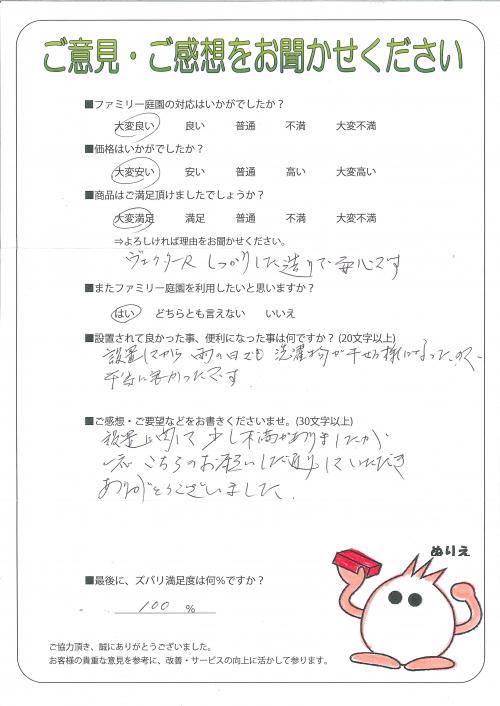 ご意見・ご感想をお聞かせください
■ファミリー庭園の対応はいかがでしたか？
大変良い 良い 普通 不満 大変不満
■価格はいかがでしたか？
大変安い 安い 普通 高い 大変高い
■商品はご満足頂けましたでしょうか？
大変満足 満足 普通 不満 大変不満
⇒よろしければ理由をお聞かせください。
ヴェクターR しっかりした造りで安心です
■またファミリー庭園を利用したいと思いますか？
はい どちらとも言えない いいえ
■設置されて良かった事、便利になった事は何ですか？(20文字以上)
設置してから 雨の日でも 洗濯物が干せる様になったので、
非常に良かったです
■ご感想・ご要望などをお書きくださいませ。(30文字以上)
設置に関して 少し不満がありましたが
一応 こちらのお願いした通りにしていただき
ありがとうございました。
ぬりえ
■最後に、ズバリ満足度は何%ですか？
100 %
ご協力頂き、誠にありがとうございました。
お客様の貴重な意見を参考に、改善・サービスの向上に活かして参ります。